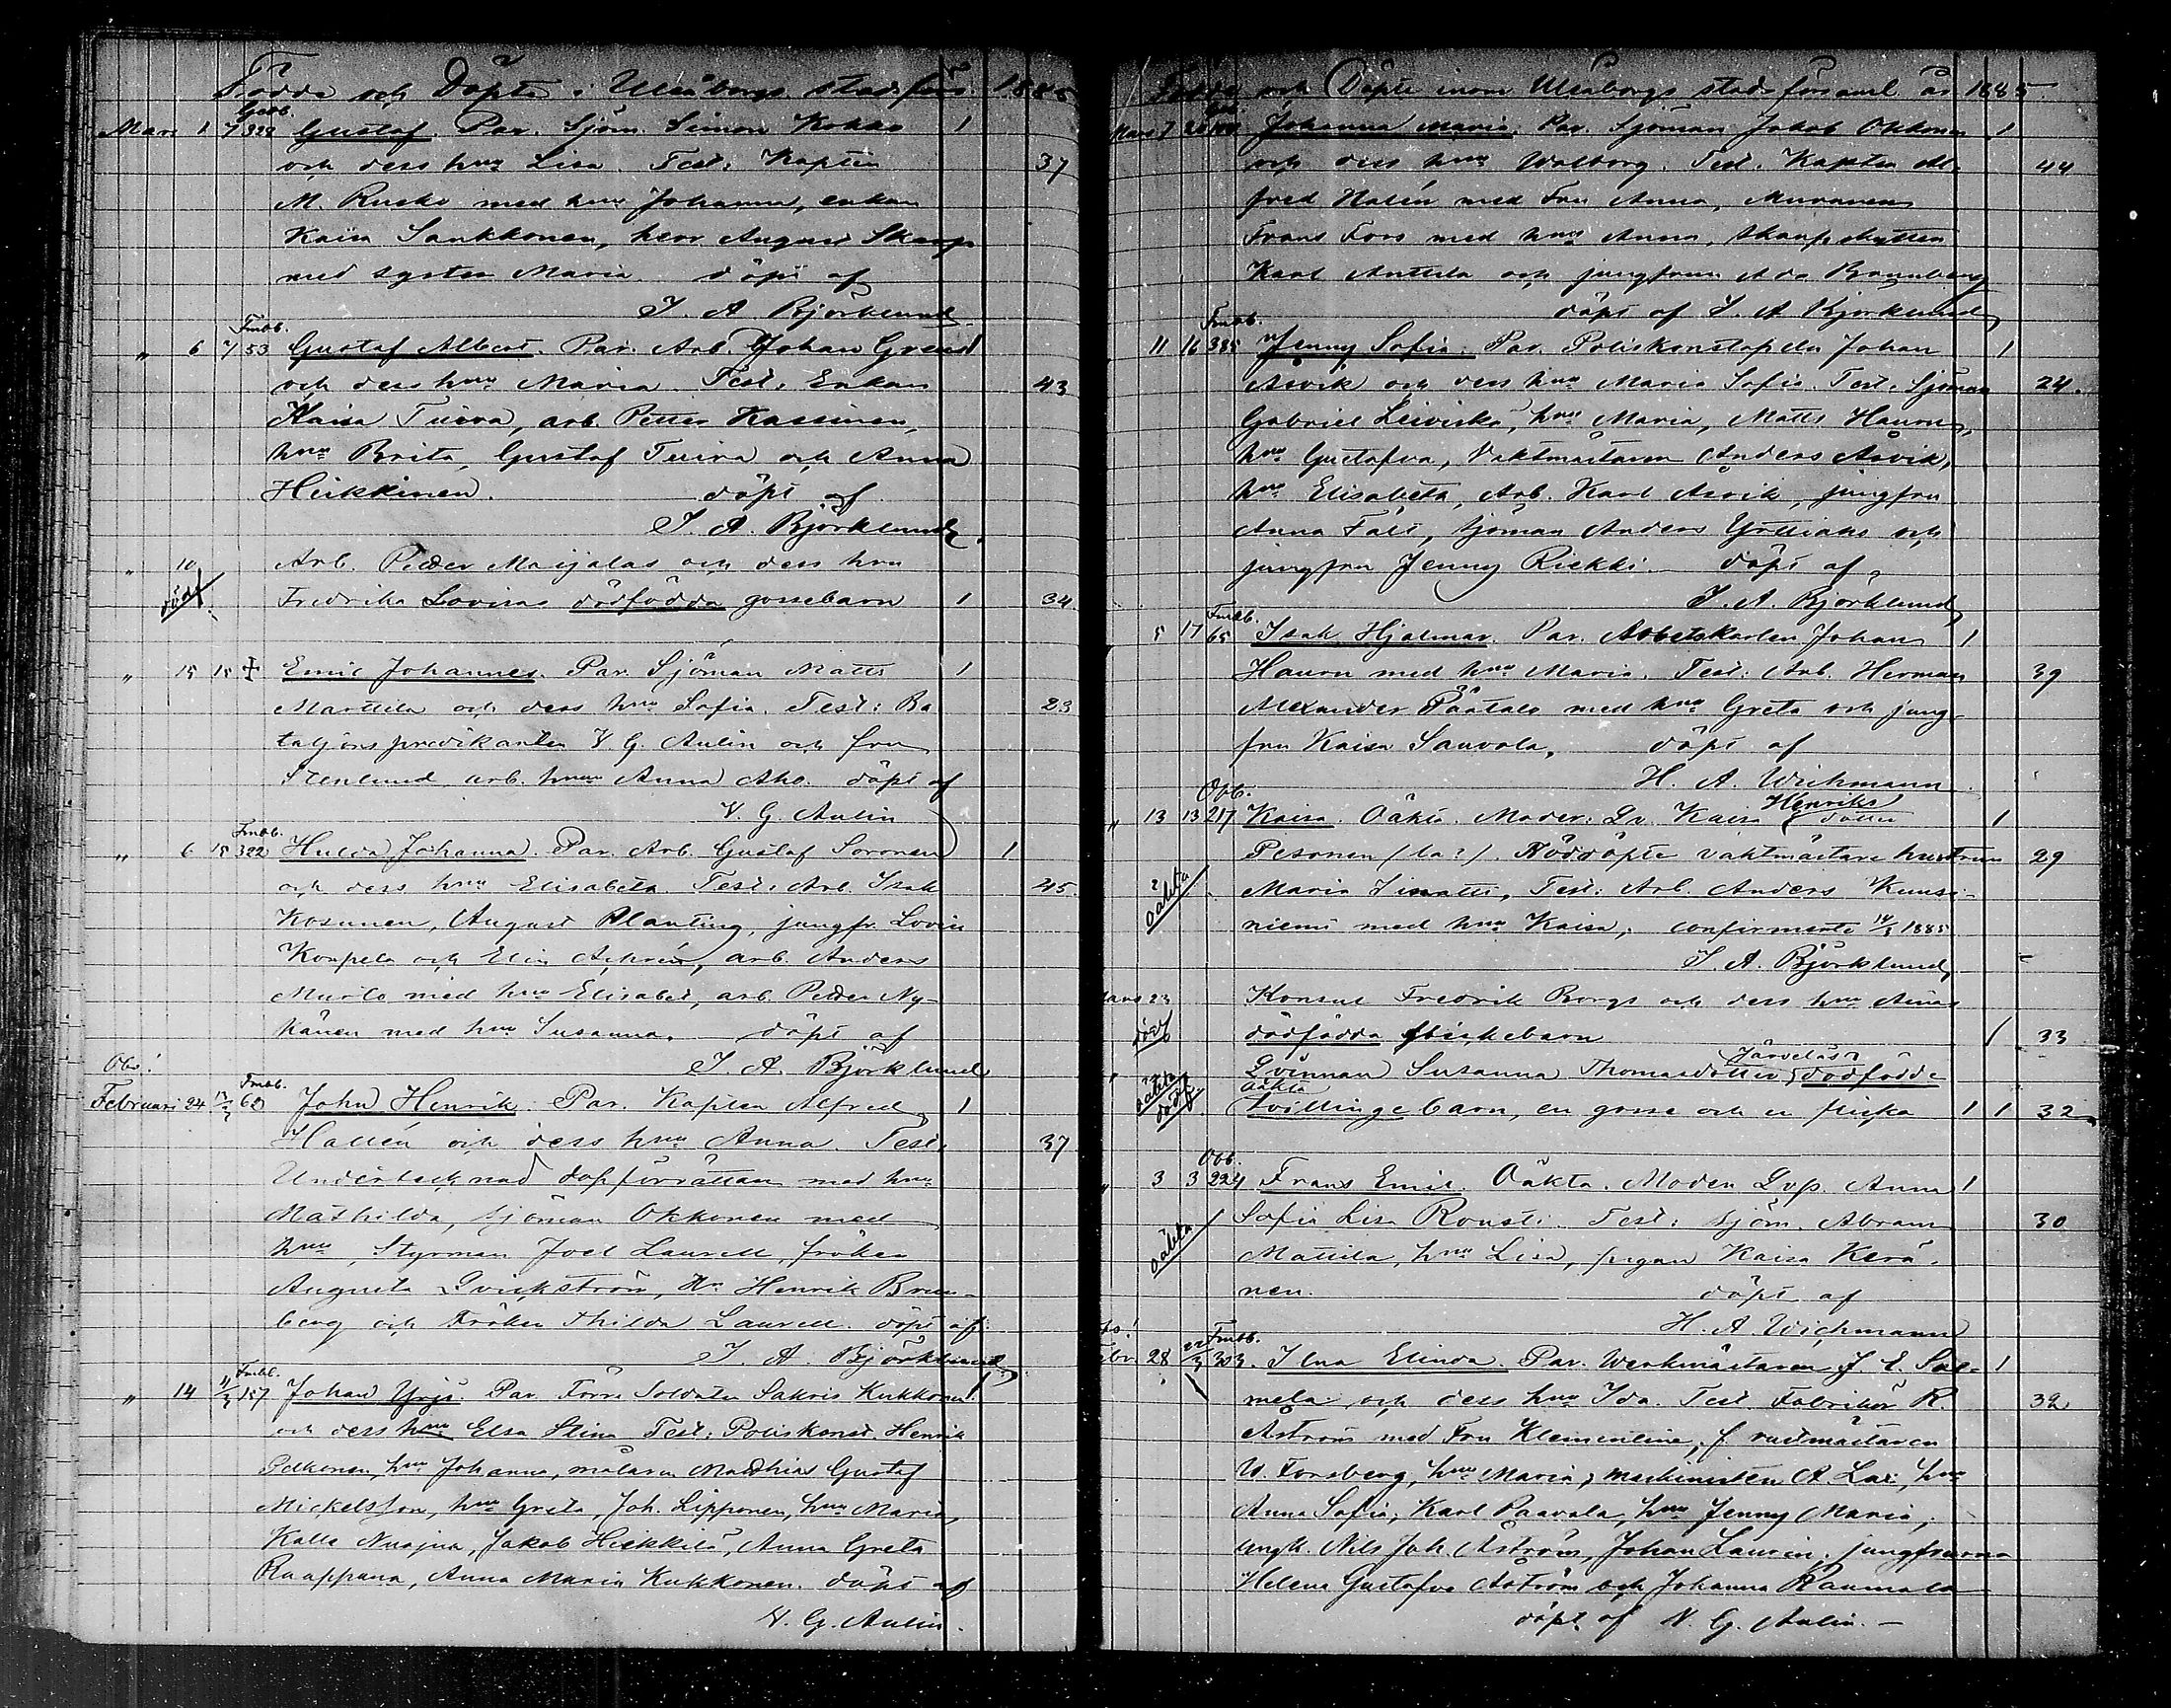 Födde och Döpte i Uleåborgs stadsförs. 1885
Gatb.
Mars 1 7 328 Gustaf. Par. Sjöm. Simon Kokko 1
och dess hru Lisa. Test: Kapten 37
M. Rusko med hru Johanna, enkan
Kaisa Sankkonen, herr August
med syster Maria. döpt af
J. A. Björklund
Fmbb.
" 6 53 Gustaf Albert. Par. Arb. Johan 1
och dess hru Maria. Test: Enkan 43
Kaisa Tuira, arb. Petter Kassinen,
hru Brita, Gustaf Tuira och Anna
Heikkinen. döpt af
J. A. Björklund.
" 10 Arb. Peder Maijalas och dess hru
dödf. Fredrika Lovisas dödfödda gossebarn 1 34
" 15 15 ‡ Emil Johannes. Par. Sjöman Matts 1
Marttila och dess hru Sofia. Test: Ba 23
taljonspredikanten V. G. Aulin och fru
Stenlund arb. hrun Anna Aho. döpt af
V. G. Aulin
Fmbb.
" 6 15 322 Hulda Johanna. Par. Arb. Gustaf Soronen 1
och dess hru Elisabeta. Test: Arb. Isak 45
Kosunen, August Planting, jungfr. Lovisa
Koupela och Elin, arb. Anders
Murto med hru Elisabet, arb. Peder Ny-
känen med hru Susanna. döpt af
Obs! J. A. Björklund
Fmbb.
Februari 24 60 John Henrik. Par. Kapten Alfred 1
Hallén och dess hru Anna. Test: 37
Undertecknad dopförrättare med hru
Mathilda, sjöman Okkonen med
hru, Styrman Joel Laurell, fröken
Augusta Qvickström, Hr. Henrik Brun-
berg och Fröken Thilda Laurell. döpt af
J. A. Björklund
Fmbb.
" 14 11/3 157 Johan Yrjö. Par. Förre Soldaten Sakris Kukkonen 1
och dess hru Elsa Stina Test: Poliskonst. Henrik
Pelkonen, hru Johanna, målaren Matthias Gustaf
Mickelsson, hru Greta, Joh. Lipponen, hru Maria,
Kalle Nuojua, Jakob Heikkilä, Anna Greta
Raappana, Anna Maria Kukkonen. döpt af
V. G. Aulin.
Födde och Döpte inom Uleåborgs stadsförsaml. år 1885.
Mars 7 Johanna Maria. Par. Sjöman Jakob Okkonen 1
och dess hru Walborg. Test. Kapten Al- 44
fred Halén med Fru Anna, Muraren
Frans Fors med hru Anna, skarpskytten
Karl Anttila och jungfrun Ada Brunberg
döpt af J. A. Björklund
Fmbb.
11 16 385 Jenny Sofia. Par. Poliskonstapeln Johan 1
Asvik och dess hru Maria Sofia. Test. Sjöman 24.
Gabriel Leiviskä, hru Maria, Matts Hauru,
hru Gustafva, Vaktmästaren Anders Asvik,
hru Elisabeta, Arb. Karl Asvik, jungfru
Anna Fält, sjöman Anders och
jungfru Jenny Riekki. döpt af
J. A. Björklund
Fmbb.
5 17 65 Isak Hjalmar. Par. Arbetskarlen Johan 1
Hauru med hru Maria. Test: Arb. Herman 39
Alexander Paatalo med hru Greta och jung-
fru Kaisa Sauvola. döpt af
H. A. Wichmann
Obb. Henriks
" 13 13 217 Kaisa. Oäkta. Moder: Qv. Kaisa dotter 1
Pesonen (la?). Nöddöpte vaktmästare hustrun 29
oäkta Maria, Test: Arb. Anders Kuusi-
niemi med hru Kaisa; confirmerte 14/3 1885
J. A. Björklund
Mars 23 Konsul Fredrik Borgs och dess hru Annas
dödf dödfödda flickebarn 1 33
Järveläs
" Qvinnan Susanna Thomasdotter dödfödde
oäkta dödf oäkta tvillingebarn, en gosse och en flicka 1 1 32
Obb.
" 3 3 224 Frans Emil. Oäkta. Moder Qvp. Anna 1
Sofia Lisa Rousti. Test: sjöm. Abram 30
oäkta Mattila, hru Lisa, pigan Kaisa Kerä-
nen. döpt af
H. A. Wichmann
Fmbb.
Febr. 28 22/3 303. Ilma Elinda. Par. Werkmästaren J. E. Sal- 1
mela och dess hru Ida. Test Fabrikör R. 32
Åström med Fru Klementine, f. rustmästaren
W. Forsberg, hru Maria, maskinisten A. Lax, hru
Anna Sofia, Karl Paavola, hru Jenny Maria,
ungk. Nils Joh. Åström, Johan Laurin, jungfrurna
Helena Gustafva Åström och Johanna Raumala
döpt af V. G. Aulin. —